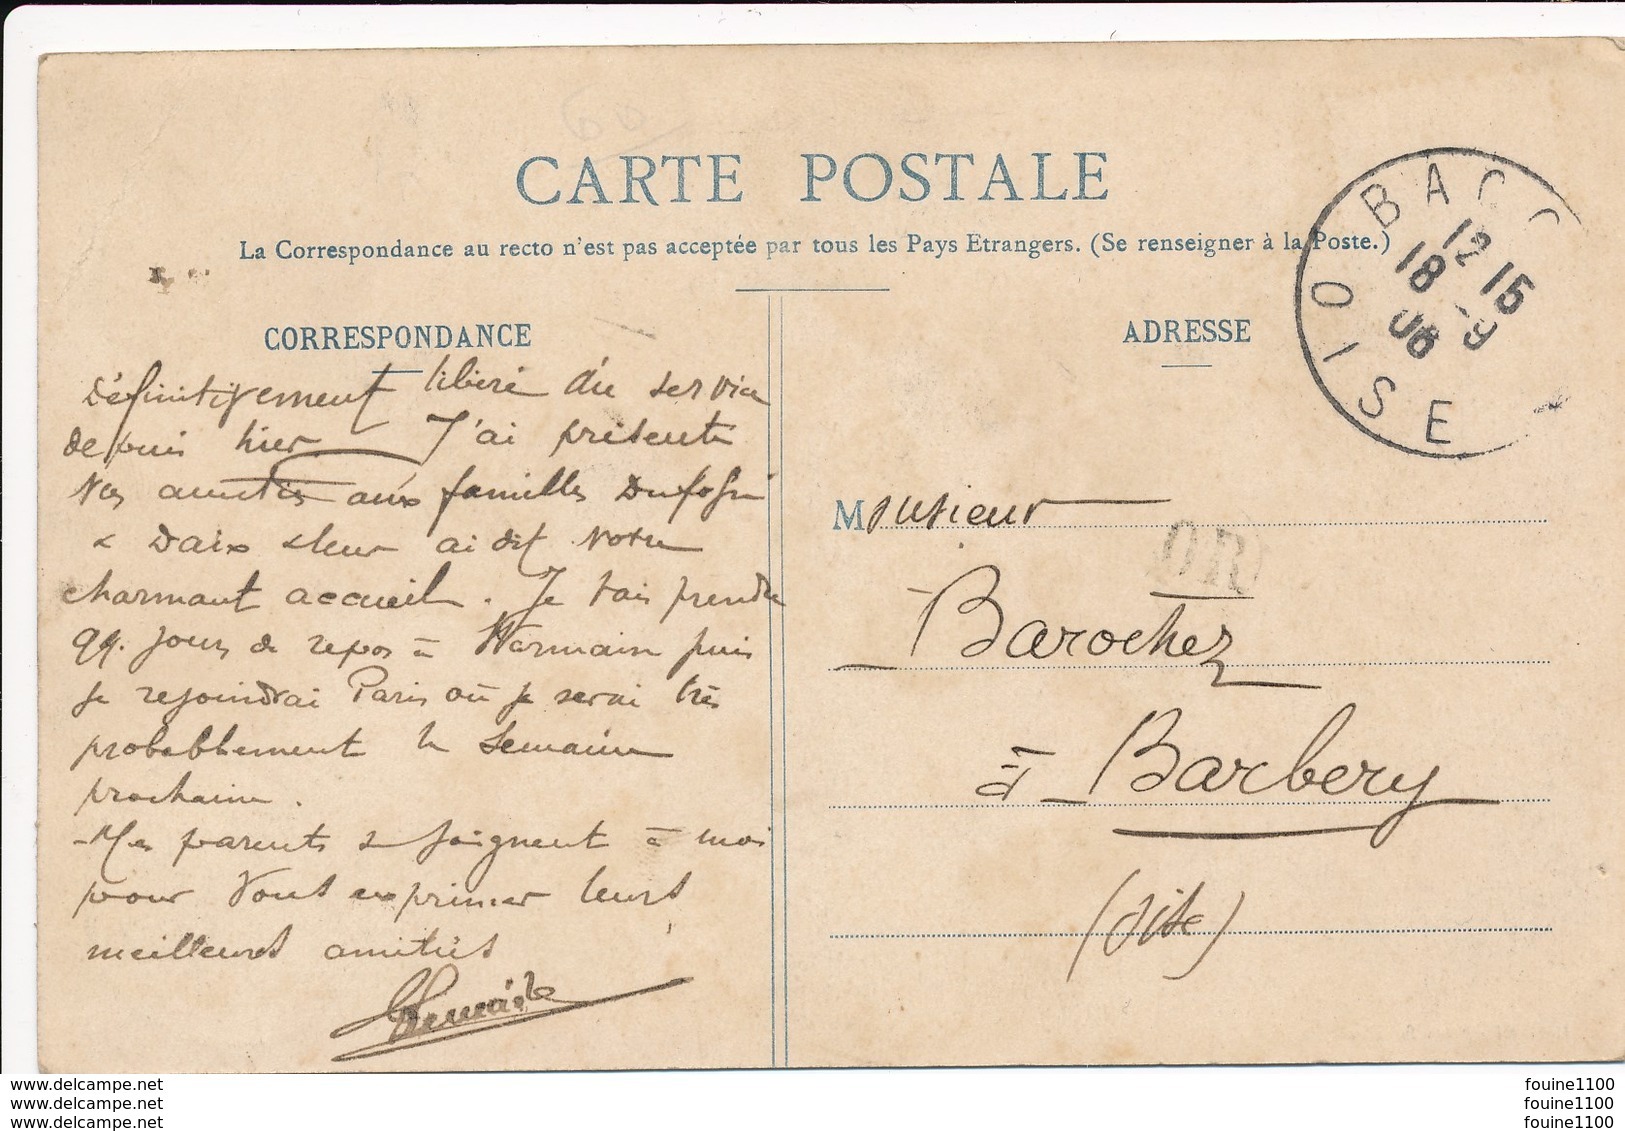 CARTE POSTALE
La Correspondance au recto n'est pas acceptée par tous les Pays Etrangers. (Se renseigner à la Poste.)
CORRESPONDANCE
Définitivement libéré du service
depuis hier. J'ai présenté
Vos amitiés aux familles Dufossé
& Daix & leur ai dit votre
charmant accueil. Je vais prendre
qq. jours de repos à Warmain puis
je rejoindrai Paris où je serai très
probablement la semaine
prochaine.
- Mes parents se joignent à moi
pour vous exprimer leurs
meilleures amitiés
ADRESSE
BACO
12 15
18 -9
06
OISE
Monsieur
OR
Barochez
à Barbery
(Oise)
www.delcampe.net
www.delcampe.net
www.delcampe.net
fouine1100
fouine1100
fouine1100